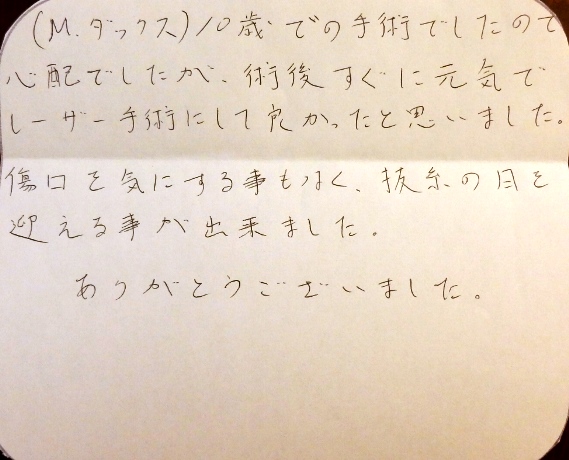 (M.ダックス)10歳での手術でしたので
心配でしたが、術後すぐに元気で
レーザー手術にして良かったと思いました。
傷口を気にする事もなく、抜糸の日を
迎える事が出来ました。
ありがとうございました。